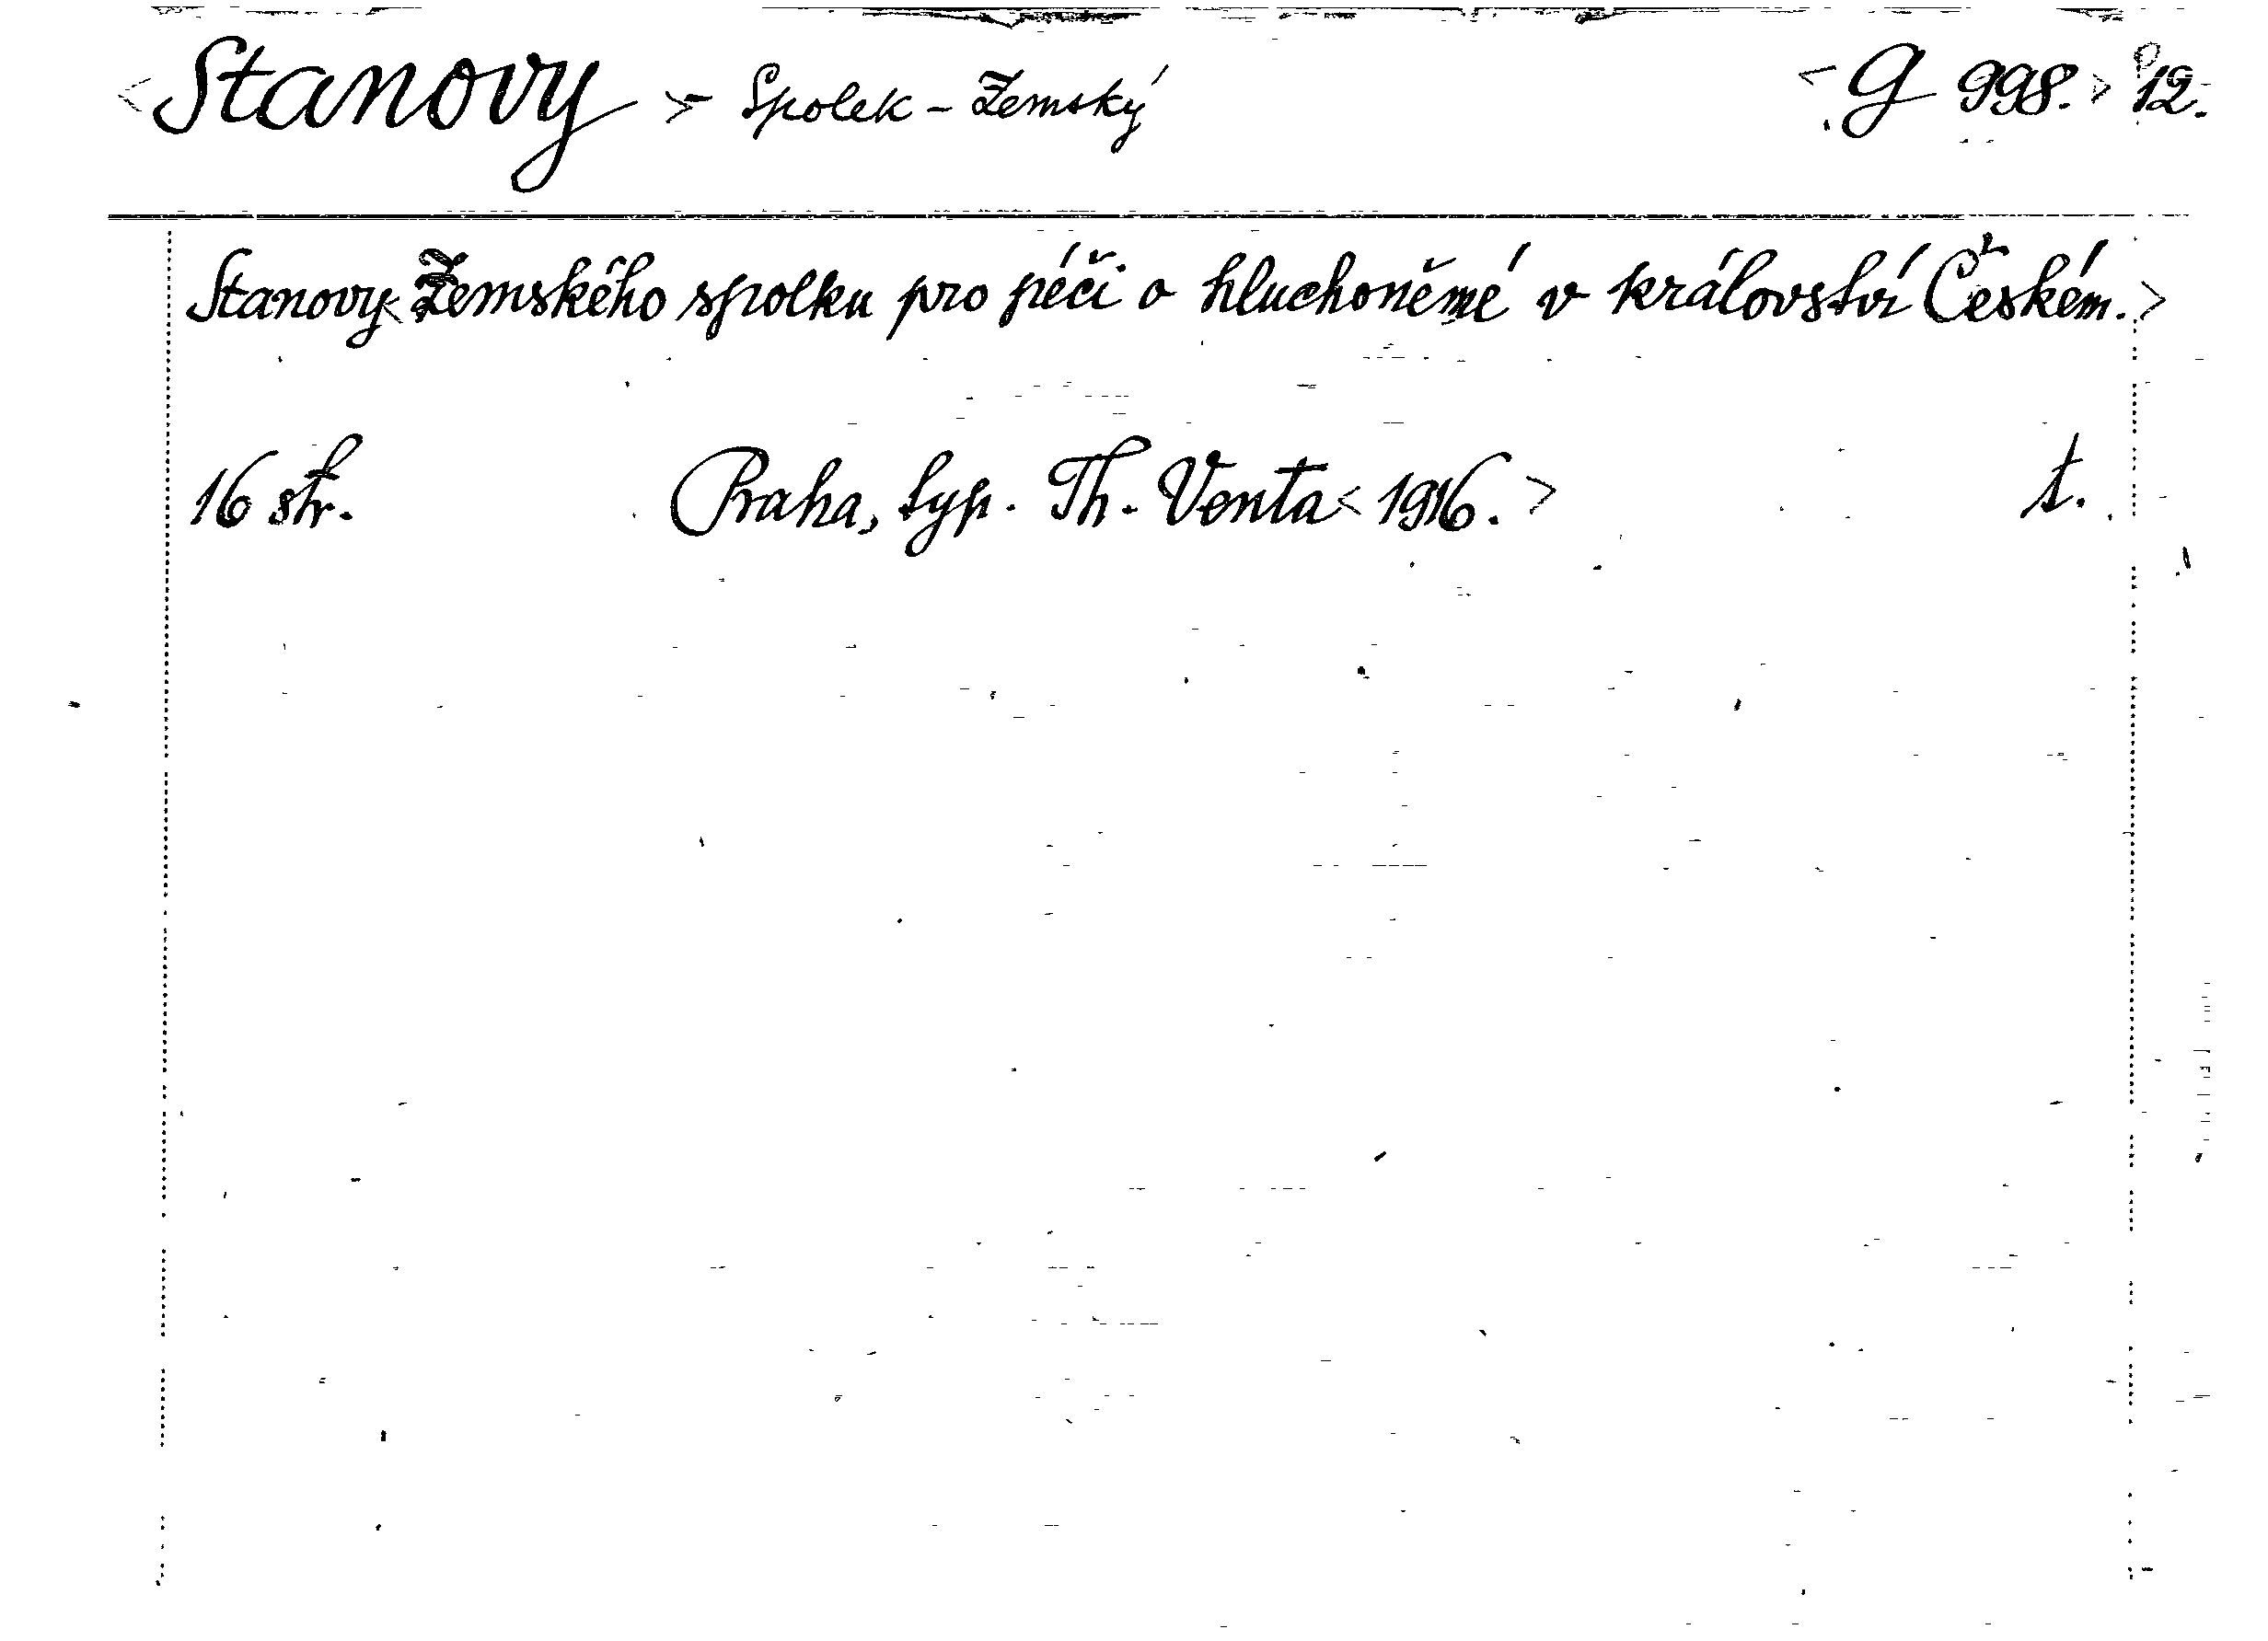 <Stanovy> - Spolek - Zemský <G 998.> 12.
Stanovy <Zemského spolku pro péči o hluchoněmé v království Českém.>
16 str. Praha, typ. Th. Venta <1916.> t.